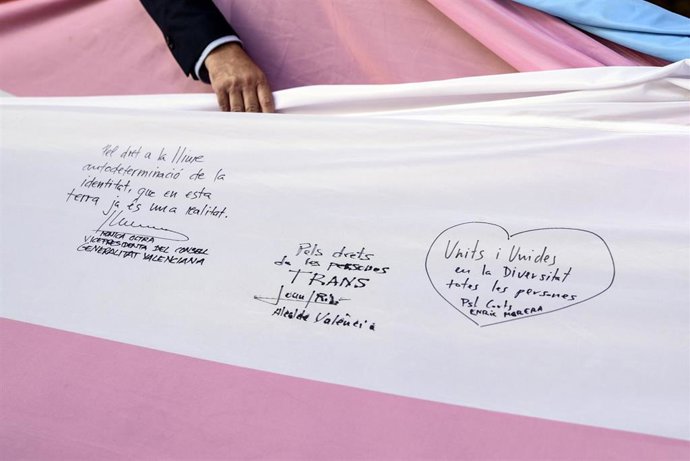 Pel dret a la lliure
autodeterminació de la
identitat, que en esta
terra ja és una realitat.
MÓNICA OLTRA
VICEPRESIDENTA DEL CONSELL
GENERALITAT VALENCIANA
Pels drets
de les persones
TRANS
Joan Ribó
Alcalde València
Units i Unides
en la Diversitat
totes les persones
Pst Corts
ENRIC MORERA